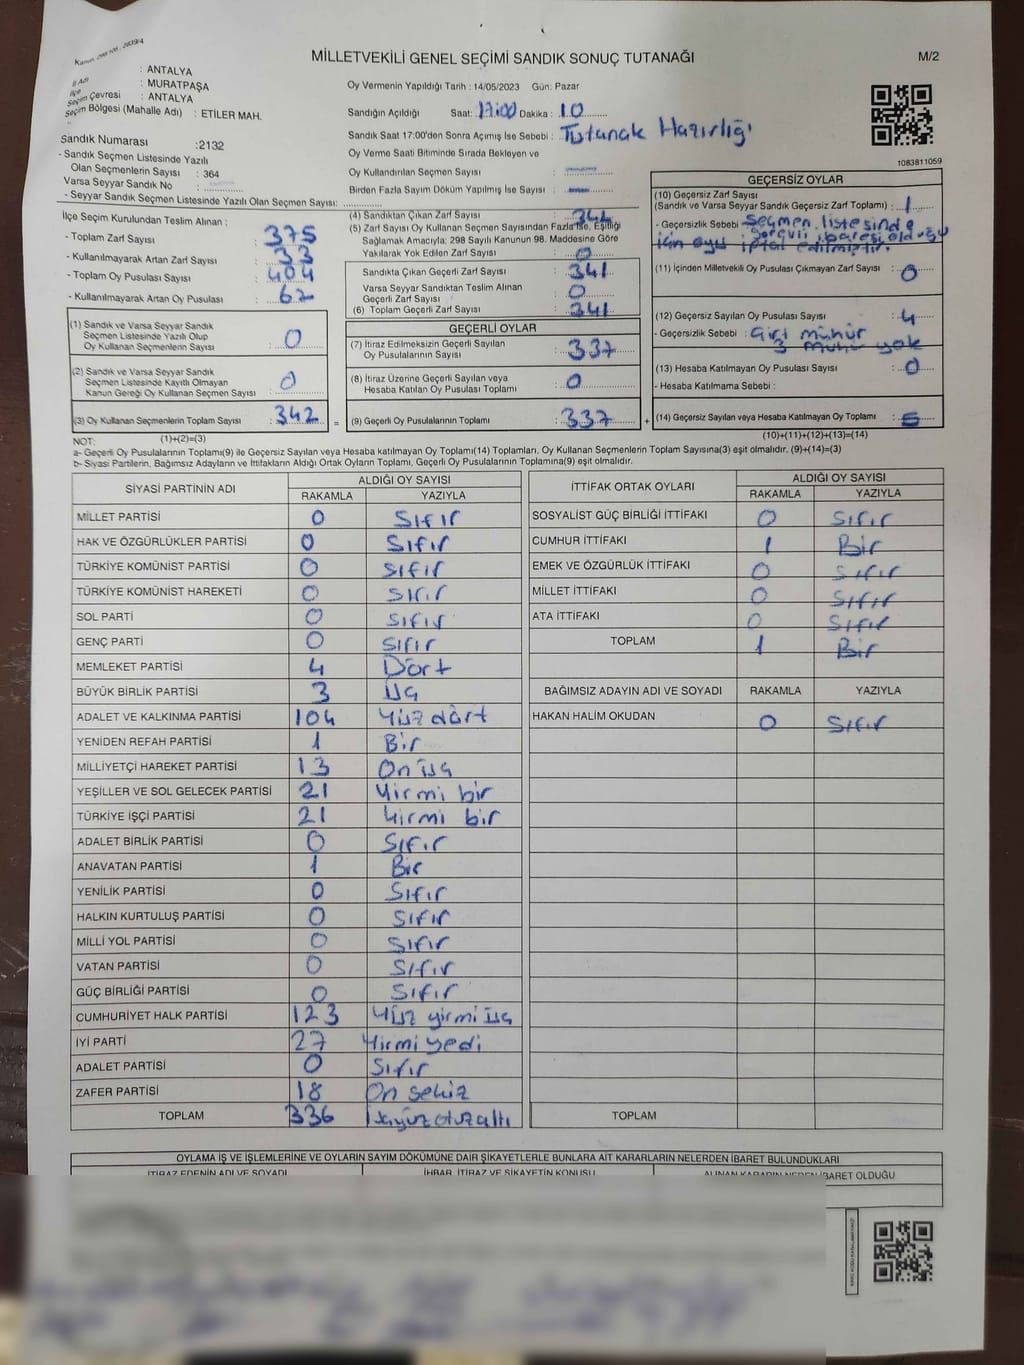 Kanun: 298/105 - 2839/4
MİLLETVEKİLİ GENEL SEÇİMİ SANDIK SONUÇ TUTANAĞI
M/2
İl Adı : ANTALYA
İlçe : MURATPAŞA
Seçim Çevresi : ANTALYA
Seçim Bölgesi (Mahalle Adı) : ETİLER MAH.
Sandık Numarası :2132
- Sandık Seçmen Listesinde Yazılı
Olan Seçmenlerin Sayısı : 364
Varsa Seyyar Sandık No :
- Seyyar Sandık Seçmen Listesinde Yazılı Olan Seçmen Sayısı:
Oy Vermenin Yapıldığı Tarih : 14/05/2023 Gün: Pazar
Sandığın Açıldığı Saat: 17:00 Dakika : 10
Sandık Saat 17:00'den Sonra Açımış İse Sebebi : Tutanak Hazırlığı
Oy Verme Saati Bitiminde Sırada Bekleyen ve
Oy Kullandırılan Seçmen Sayısı :
Birden Fazla Sayım Döküm Yapılmış İse Sayısı :
1083811059
İlçe Seçim Kurulundan Teslim Alınan :
- Toplam Zarf Sayısı : 375
- Kullanılmayarak Artan Zarf Sayısı : 33
- Toplam Oy Pusulası Sayısı : 404
- Kullanılmayarak Artan Oy Pusulası : 62
(1) Sandık ve Varsa Seyyar Sandık
Seçmen Listesinde Yazılı Olup
Oy Kullanan Seçmenlerin Sayısı : 0
(2) Sandık ve Varsa Seyyar Sandık
Seçmen Listesinde Kayıtlı Olmayan
Kanun Gereği Oy Kullanan Seçmen Sayısı : 0
(3) Oy Kullanan Seçmenlerin Toplam Sayısı : 342
(4) Sandıktan Çıkan Zarf Sayısı :
(5) Zarf Sayısı Oy Kullanan Seçmen Sayısından Fazla İse, Eşitliği
Sağlamak Amacıyla; 298 Sayılı Kanunun 98. Maddesine Göre
Yakılarak Yok Edilen Zarf Sayısı : 0
Sandıkta Çıkan Geçerli Zarf Sayısı : 341
Varsa Seyyar Sandıktan Teslim Alınan
Geçerli Zarf Sayısı : 0
(6) Toplam Geçerli Zarf Sayısı : 341
GEÇERLİ OYLAR
(7) İtiraz Edilmeksizin Geçerli Sayılan
Oy Pusulalarının Sayısı : 337
(8) İtiraz Üzerine Geçerli Sayılan veya
Hesaba Katılan Oy Pusulası Toplamı : 0
= (9) Geçerli Oy Pusulalarının Toplamı : 337
GEÇERSİZ OYLAR
(10) Geçersiz Zarf Sayısı
(Sandık ve Varsa Seyyar Sandık Geçersiz Zarf Toplamı) : 1
- Geçersizlik Sebebi : Seçmen listesinde
görevli ibaresi olduğu
için oyu iptal edilmiştir.
(11) İçinden Milletvekili Oy Pusulası Çıkmayan Zarf Sayısı : 0
(12) Geçersiz Sayılan Oy Pusulası Sayısı : 4
- Geçersizlik Sebebi : mühür
3 mühür yok
(13) Hesaba Katılmayan Oy Pusulası Sayısı : 0
- Hesaba Katılmama Sebebi :
+ (14) Geçersiz Sayılan veya Hesaba Katılmayan Oy Toplamı : 5
NOT: (1)+(2)=(3)
(10)+(11)+(12)+(13)=(14)
a- Geçerli Oy Pusulalarının Toplamı(9) ile Geçersiz Sayılan veya Hesaba katılmayan Oy Toplamı(14) Toplamları, Oy Kullanan Seçmenlerin Toplam Sayısına(3) eşit olmalıdır. (9)+(14)=(3)
b- Siyasi Partilerin, Bağımsız Adayların ve İttifakların Aldığı Ortak Oyların Toplamı, Geçerli Oy Pusulalarının Toplamına(9) eşit olmalıdır.
SİYASİ PARTİNİN ADI ALDIĞI OY SAYISI
RAKAMLA YAZIYLA
MİLLET PARTİSİ 0 Sıfır
HAK VE ÖZGÜRLÜKLER PARTİSİ 0 Sıfır
TÜRKİYE KOMÜNİST PARTİSİ 0 Sıfır
TÜRKİYE KOMÜNİST HAREKETİ 0 Sıfır
SOL PARTİ 0 Sıfır
GENÇ PARTİ 0 Sıfır
MEMLEKET PARTİSİ 4 Dört
BÜYÜK BİRLİK PARTİSİ 3 üç
ADALET VE KALKINMA PARTİSİ 104 Yüz dört
YENİDEN REFAH PARTİSİ 1 Bir
MİLLİYETÇİ HAREKET PARTİSİ 13 On üç
YEŞİLLER VE SOL GELECEK PARTİSİ 21 Yirmi bir
TÜRKİYE İŞÇİ PARTİSİ 21 Yirmi bir
ADALET BİRLİK PARTİSİ 0 Sıfır
ANAVATAN PARTİSİ 1 Bir
YENİLİK PARTİSİ 0 Sıfır
HALKIN KURTULUŞ PARTİSİ 0 Sıfır
MİLLİ YOL PARTİSİ 0 Sıfır
VATAN PARTİSİ 0 Sıfır
GÜÇ BİRLİĞİ PARTİSİ 0 Sıfır
CUMHURİYET HALK PARTİSİ 123 Yüz yirmi üç
İYİ PARTİ 27 Yirmi yedi
ADALET PARTİSİ 0 Sıfır
ZAFER PARTİSİ 18 On sekiz
TOPLAM 336
İTTİFAK ORTAK OYLARI ALDIĞI OY SAYISI
RAKAMLA YAZIYLA
SOSYALİST GÜÇ BİRLİĞİ İTTİFAKI 0 Sıfır
CUMHUR İTTİFAKI 1 Bir
EMEK VE ÖZGÜRLÜK İTTİFAKI 0 Sıfır
MİLLET İTTİFAKI 0 Sıfır
ATA İTTİFAKI 0 Sıfır
TOPLAM 1 Bir
BAĞIMSIZ ADAYIN ADI VE SOYADI RAKAMLA YAZIYLA
HAKAN HALİM OKUDAN 0 Sıfır
TOPLAM
OYLAMA İŞ VE İŞLEMLERİNE VE OYLARIN SAYIM DÖKÜMÜNE DAİR ŞİKAYETLERLE BUNLARA AİT KARARLARIN NELERDEN İBARET BULUNDUKLARI
İTİRAZ EDENİN ADI VE SOYADI İHBAR, İTİRAZ VE ŞİKAYETİN KONUSU ALINAN KARARIN NEDEN İBARET OLDUĞU